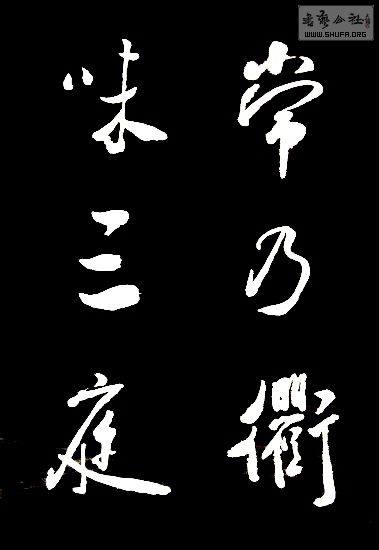 常乃衢
味三庭
書藝公社
WWW.SHUFA.ORG